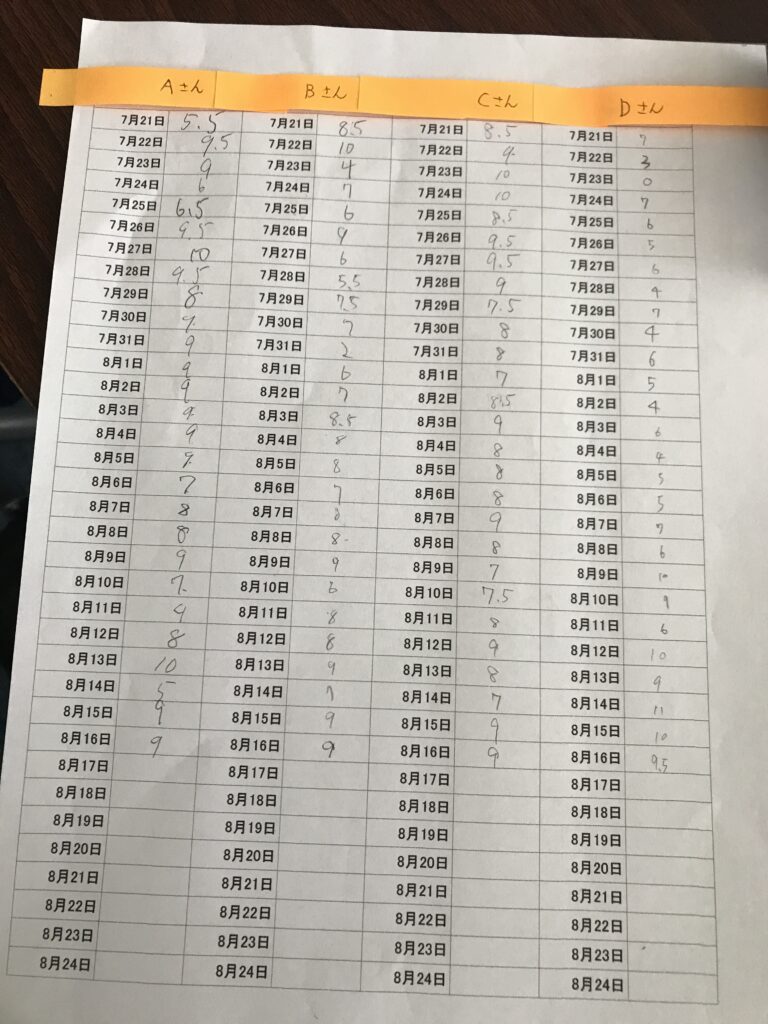 Aさん Bさん Cさん Dさん
7月21日 5.5 7月21日 8.5 7月21日 8.5 7月21日 7
7月22日 9.5 7月22日 10 7月22日 9 7月22日 3
7月23日 9 7月23日 4 7月23日 10 7月23日 0
7月24日 6 7月24日 7 7月24日 10 7月24日 7
7月25日 6.5 7月25日 6 7月25日 8.5 7月25日 6
7月26日 9.5 7月26日 9 7月26日 9.5 7月26日 5
7月27日 10 7月27日 6 7月27日 9.5 7月27日 6
7月28日 9.5 7月28日 5.5 7月28日 9 7月28日 4
7月29日 8 7月29日 7.5 7月29日 7.5 7月29日 7
7月30日 9 7月30日 7 7月30日 8 7月30日 4
7月31日 9 7月31日 2 7月31日 8 7月31日 6
8月1日 9 8月1日 6 8月1日 7 8月1日 5
8月2日 9 8月2日 7 8月2日 8.5 8月2日 4
8月3日 9 8月3日 8.5 8月3日 9 8月3日 6
8月4日 9 8月4日 8 8月4日 8 8月4日 4
8月5日 9 8月5日 8 8月5日 8 8月5日 5
8月6日 7 8月6日 7 8月6日 8 8月6日 5
8月7日 8 8月7日 8月7日 9 8月7日 7
8月8日 8 8月8日 8 8月8日 8 8月8日 6
8月9日 9 8月9日 9 8月9日 7 8月9日 10
8月10日 7 8月10日 6 8月10日 7.5 8月10日 9
8月11日 8月11日 8 8月11日 8 8月11日 6
8月12日 8 8月12日 8 8月12日 9 8月12日 10
8月13日 10 8月13日 9 8月13日 8 8月13日 9
8月14日 5 8月14日 7 8月14日 7 8月14日 11
8月15日 9 8月15日 9 8月15日 9 8月15日 10
8月16日 9 8月16日 9 8月16日 9 8月16日 9.5
8月17日 8月17日 8月17日 8月17日
8月18日 8月18日 8月18日 8月18日
8月19日 8月19日 8月19日 8月19日
8月20日 8月20日 8月20日 8月20日
8月21日 8月21日 8月21日 8月21日
8月22日 8月22日 8月22日 8月22日
8月23日 8月23日 8月23日 8月23日
8月24日 8月24日 8月24日 8月24日